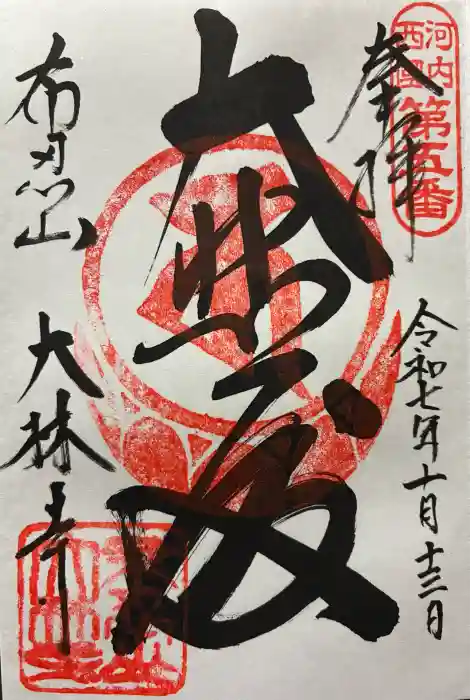 河内
西國
第五番
奉拝
令和七年十月十三日
大悲殿
布忍山 大林寺